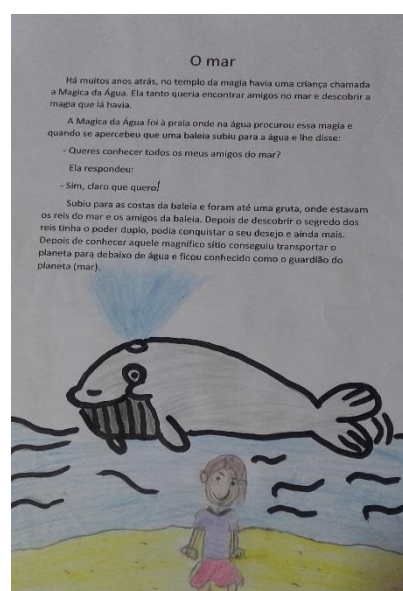 O mar
Há muitos anos atrás, no templo da magia havia uma criança chamada
a Magica da Água. Ela tanto queria encontrar amigos no mar e descobrir a
magia que lá havia.
A Magica da Água foi à praia onde na água procurou essa magia e
quando se apercebeu que uma baleia subiu para a água e lhe disse:
- Queres conhecer todos os meus amigos do mar?
Ela respondeu:
- Sim, claro que quero!
Subiu para as costas da baleia e foram até uma gruta, onde estavam
os reis do mar e os amigos da baleia. Depois de descobrir o segredo dos
reis tinha o poder duplo, podia conquistar o seu desejo e ainda mais.
Depois de conhecer aquele magnífico sítio conseguiu transportar o
planeta para debaixo de água e ficou conhecido como o guardião do
planeta (mar).